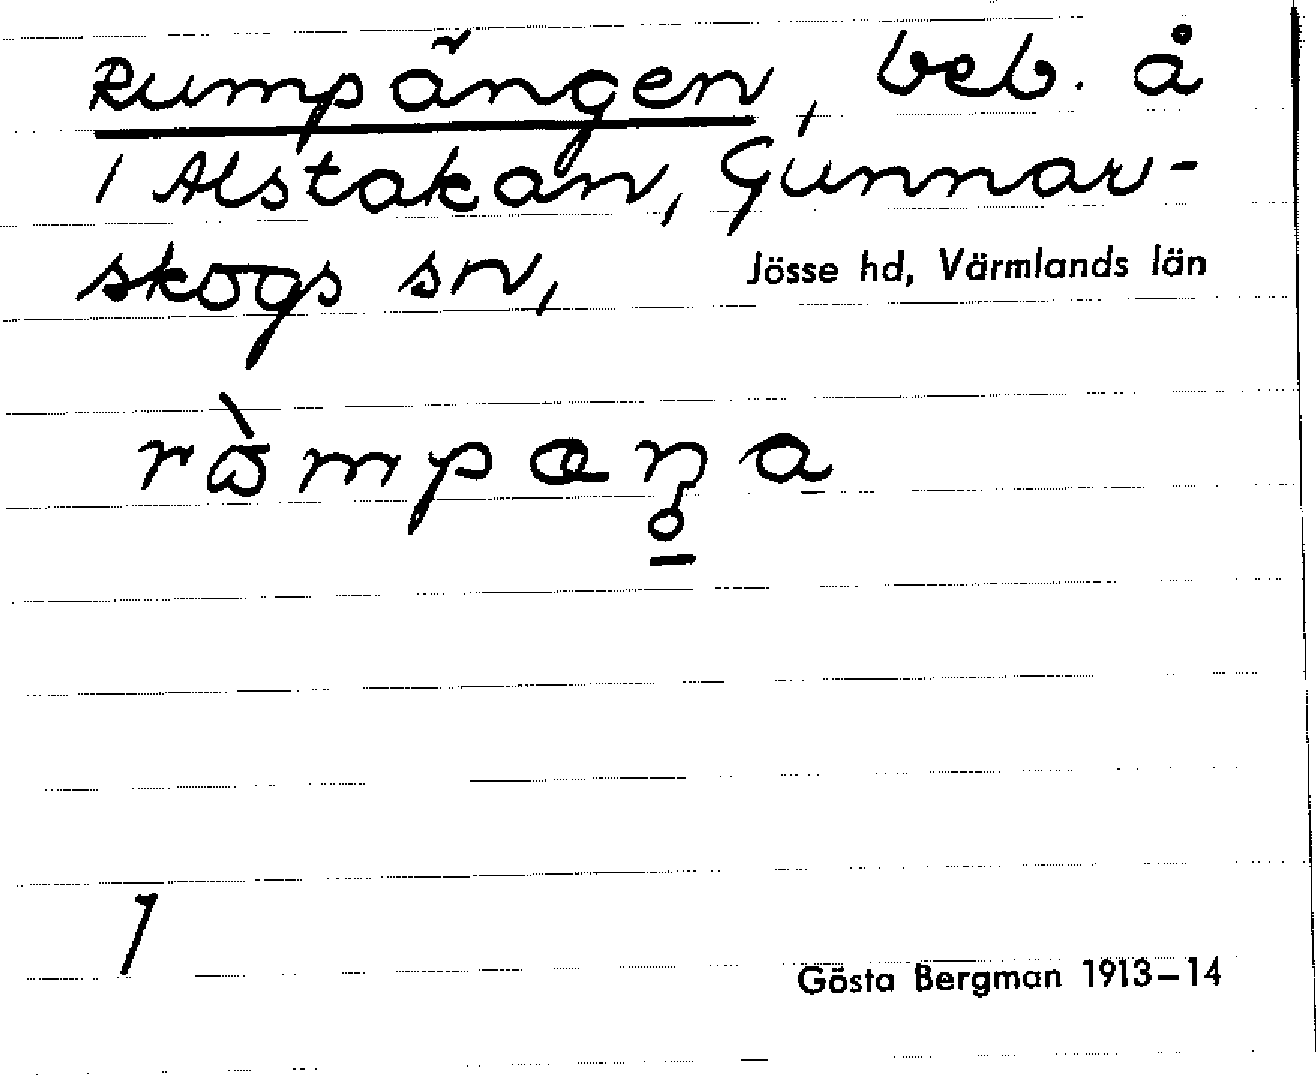 Rumpängen, beb. å
1 Alstakan, Gunnar-
skogs sn, Jösse hd, Värmlands län
1
Gösta Bergman 1913–14